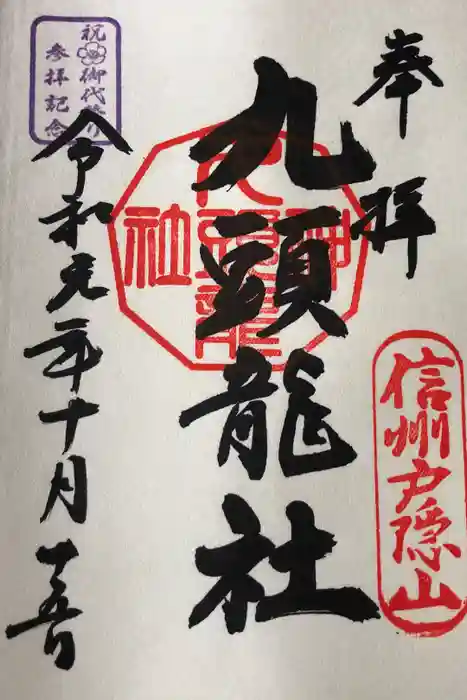 奉拝
信州戸隠山
九頭龍社
令和元年十月十五日
祝御代替り
参拝記念